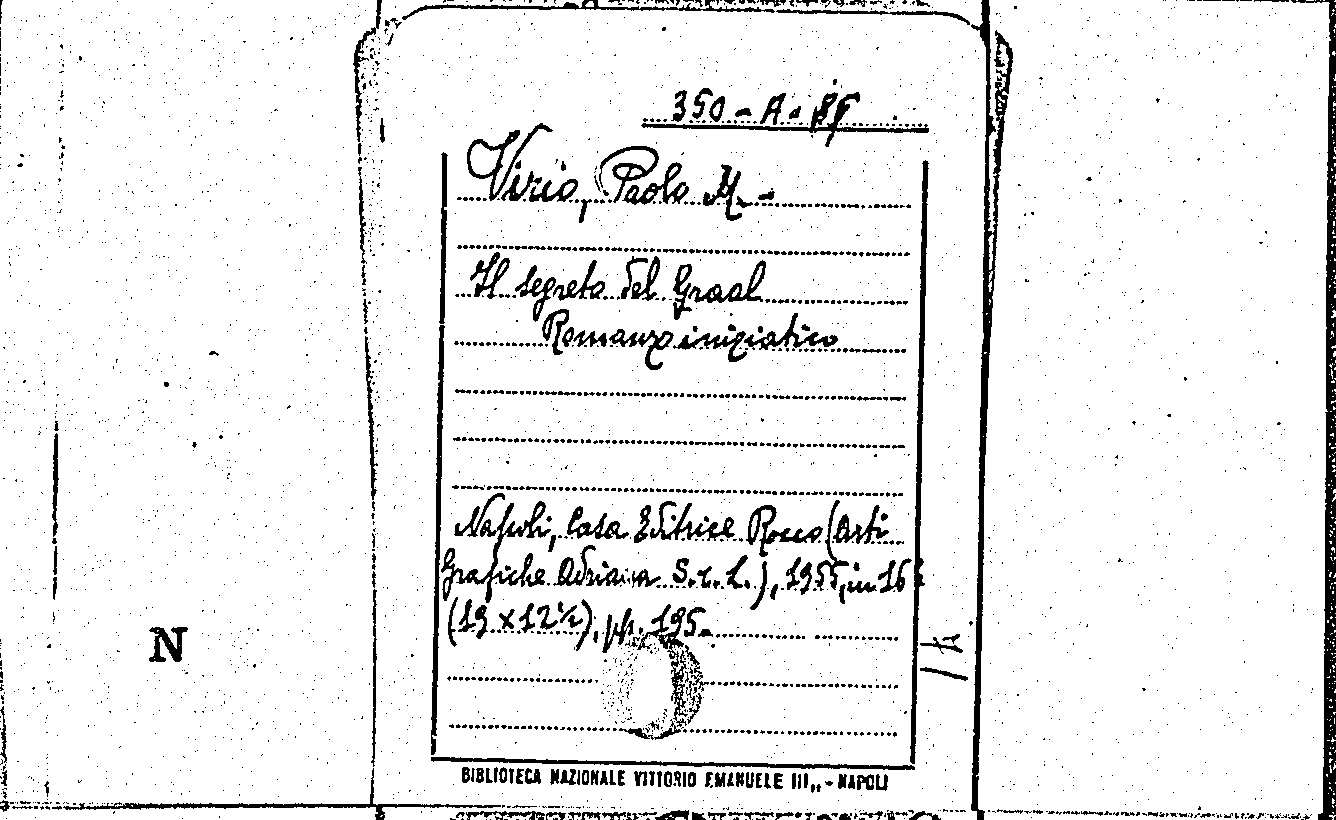 350 - A - 85
Virio, Paolo M. -
Il segreto del Graal
Romanzo iniziatico
Napoli, Casa Editrice Rocco (Arti
Grafiche Adriana S.r.L.), 1955, in 16°
(19 x 12½), pp. 195.
N
BIBLIOTECA NAZIONALE VITTORIO EMANUELE III,, - NAPOLI